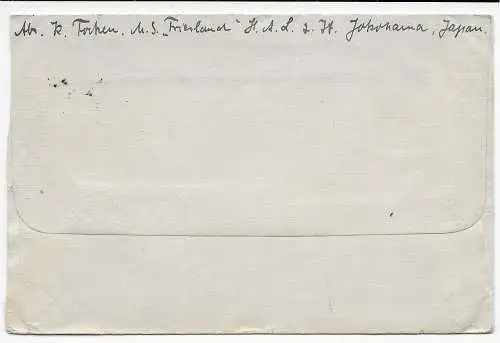 Abs. K. Tocken. M.S. „Friesland" H.A.L. z. Zt. Jokohama, Japan.